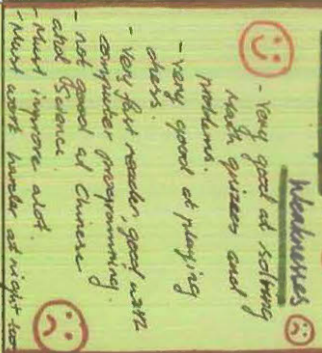 Weaknesses
- Very good at solving
Math quizzes and
problems.
- very good at playing
chess.
- Very fast reader, good with
computer programming.
- not good at Chinese
and Science
- Must improve alot.
- Must work harder at night too